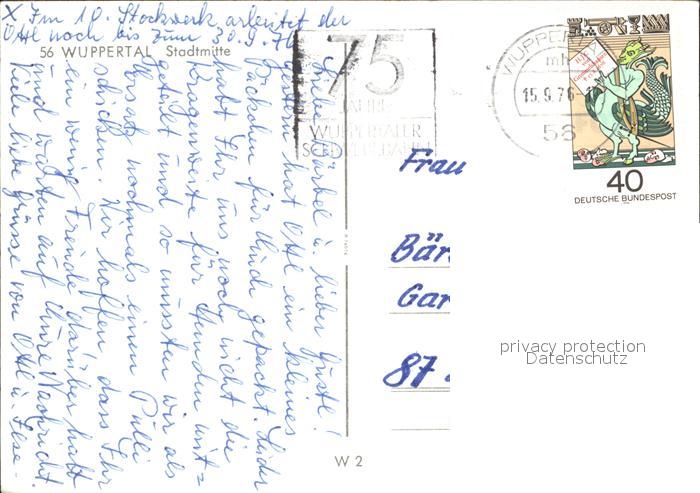 x Im 10. Stockwerk arbeitet der
Otti noch bis zum 30.9.76
56 WUPPERTAL Stadtmitte
Liebe Bärbel u. lieber Gustl!
Gestern hat Otti ein kleines
Päckchen für Euch gepackt. Leider
habt Ihr uns noch nicht die
Kragenweite für Hemden mit=
geteilt und so mussten wir als
Ersatz nochmals einen Pulli
schicken. Wir hoffen dass Ihr
ein wenig Freude darüber habt
und warten auf Eure Nachricht.
Viele liebe Grüsse von Otti u.
75
JAHRE
WUPPERTALER
SCHWEBEBAHN
WUPPERTAL
mh
15.9.76
56
40
DEUTSCHE BUNDESPOST
Frau
Bär
Gar
87
privacy protection
Datenschutz
W 2